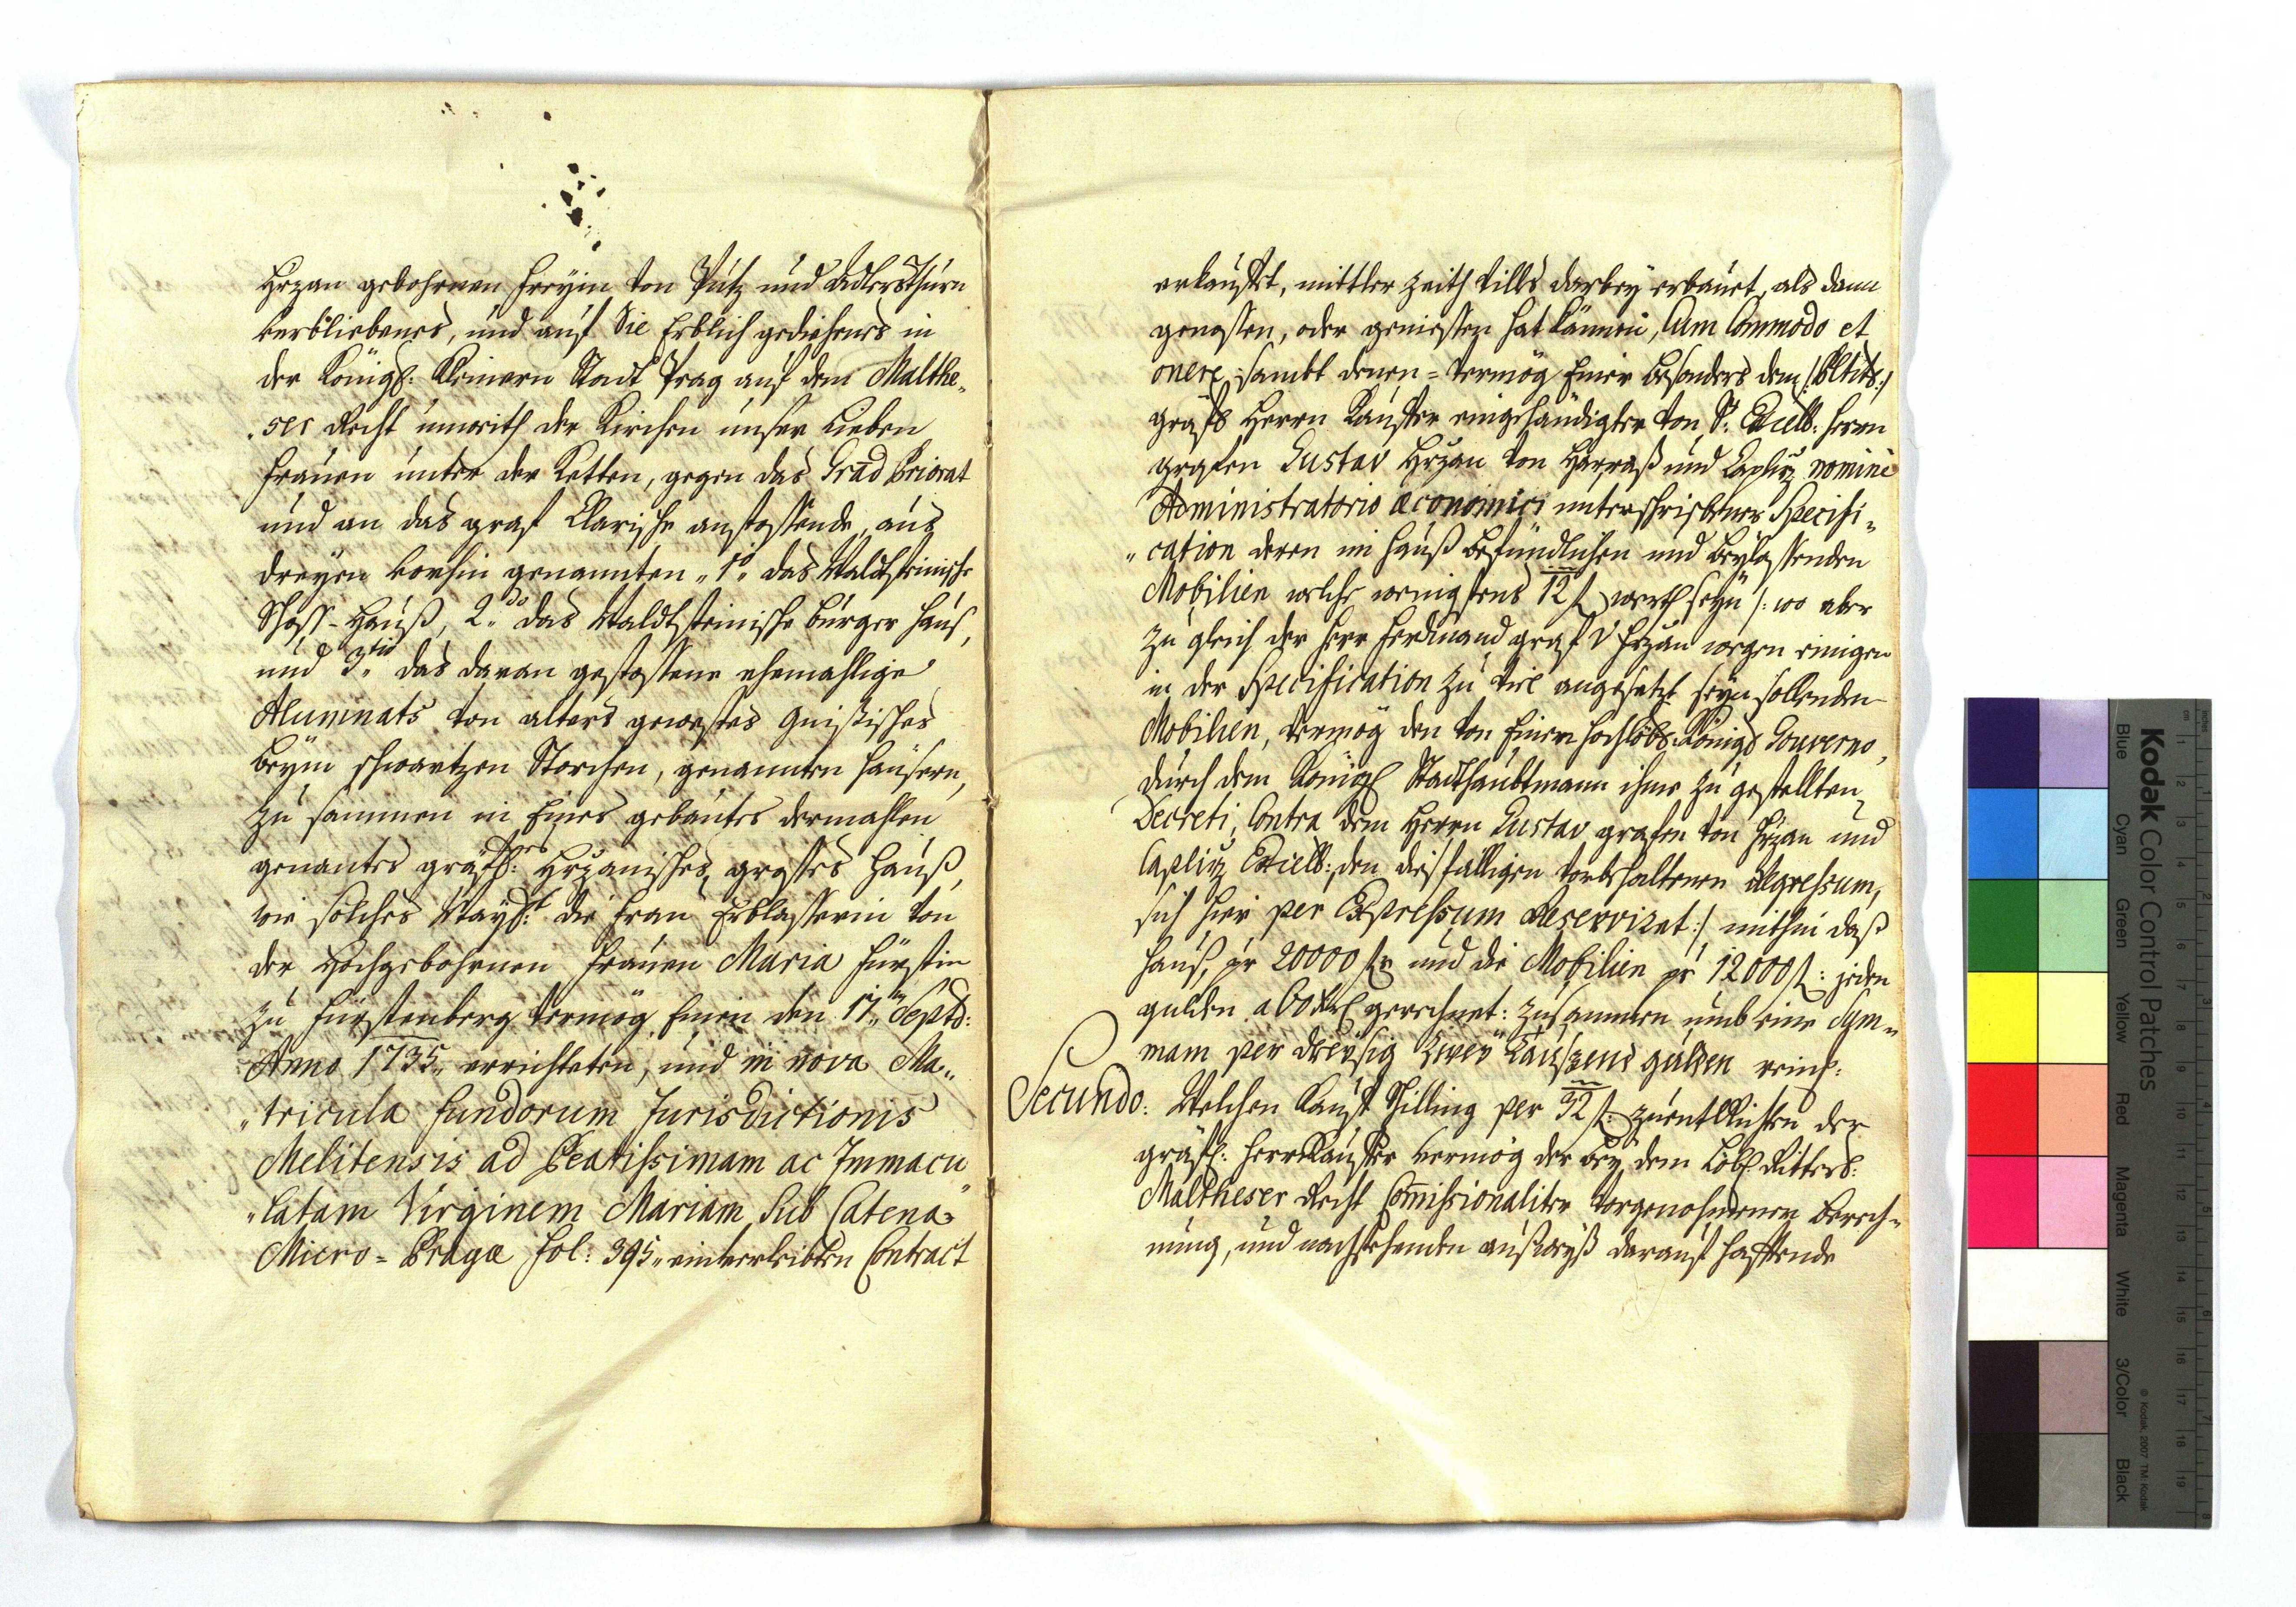 Hrzan gebohrnen Freyin von Pütz und Adlersthurn
verbliebenes, und auf Sie Erblich gediehenes in
der Königl: Kleinern Stadt Prag auf dem Malthe„
„ser Recht unweith der Kirchen unser Lieben
Frauen unter der Ketten, gegen das Grad Priorat
und an das graf Clarische anstossende, aus
dreyen vorhin genannten „1o„ das Waldsteinische
Schoss-Hauß, 2„do das Waldtsteinische burger Haus,
und 3„tio das daran gestossene ehemahlige
Alumnats von alters gewestes
beym schwartzen Storchen, genannten Häusern,
zu sammen in Eines gebautes dermahlen
genantes gräfl:hes Hrzanisches grosses Hauß,
wie solches Weyl:t die Frau Erblasserin von
der Hochgebohrnen Frauen Maria Fürstin
zu Fürstenberg vermög Einen den 17„ten Septb:
Anno 1735„ errichteten, und in nova Ma„
„tricula fundorum Jurisdictionis
Melitensis ad Beatissimam ac Immacu
„latam Virginem Mariam Sub Catena
Micro=Pragæ fol: 395„ einverleibten Contract
erkaufft, mittler zeith darbey erbauet, als dann
genossen, oder geniessen hat können, Cum Commodo et
onere, sambt denen=vermög Einer besonders dem /:
gräfl Herrn Kauffer eingehändigter von Sr: Excell: Herrn
grafen Gustav Hrzan von Harraß und Caplirz nomine
Administratorio œconomici unterschriebener Specifi„
„cation deren im Hauß befündlichen und beylassenden
Mobilien welche wenigstens 12 f werth seyn /: wo aber
zu gleich der Herr Ferdinand graf v Hrzan wegen einigen
in der Specification zu viel angesetzt seyn sollenden
Mobilien, vermög den von Einer Hochlöbl: Königl Gouverno,
durch dem Königl Stadthaubtmann ihme zu gestellten
Decreti, Contra dem Herrn Gustav grafen von Hrzan und
Caplirz Excell: den diesfalligen vorbehaltenen Regressum,
sich hier per Expressum Reservizet:/ mithin daß
Hauß, pr 20000 f und die Mobilien pr 12000 f: jeden
gulden a 60 Xr gerechnet: zusammen umb eine Sum„
mam per dreysig zwey Taußend gulden reinl:
Secundo: Welchen Kauf Schilling per 32 f: zuentrichten der
gräfl: Herr Kauffer vermög der bey dem Löbl Ritterl:
Maltheser Recht Com̄issionaliter vorgenohmenen berech„
nung, und nachstehenden außweyß darauf hafftende